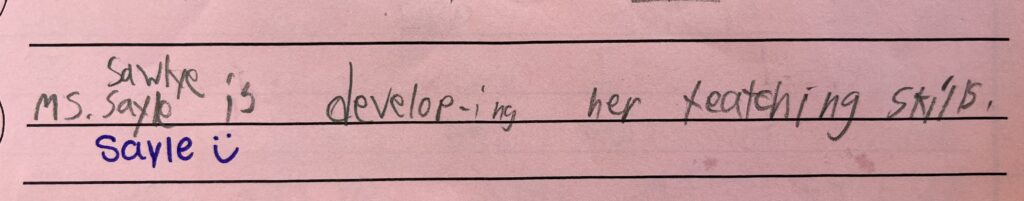 Sawlye
Ms. Sayle is develop-ing her teatching skills.
Sayle